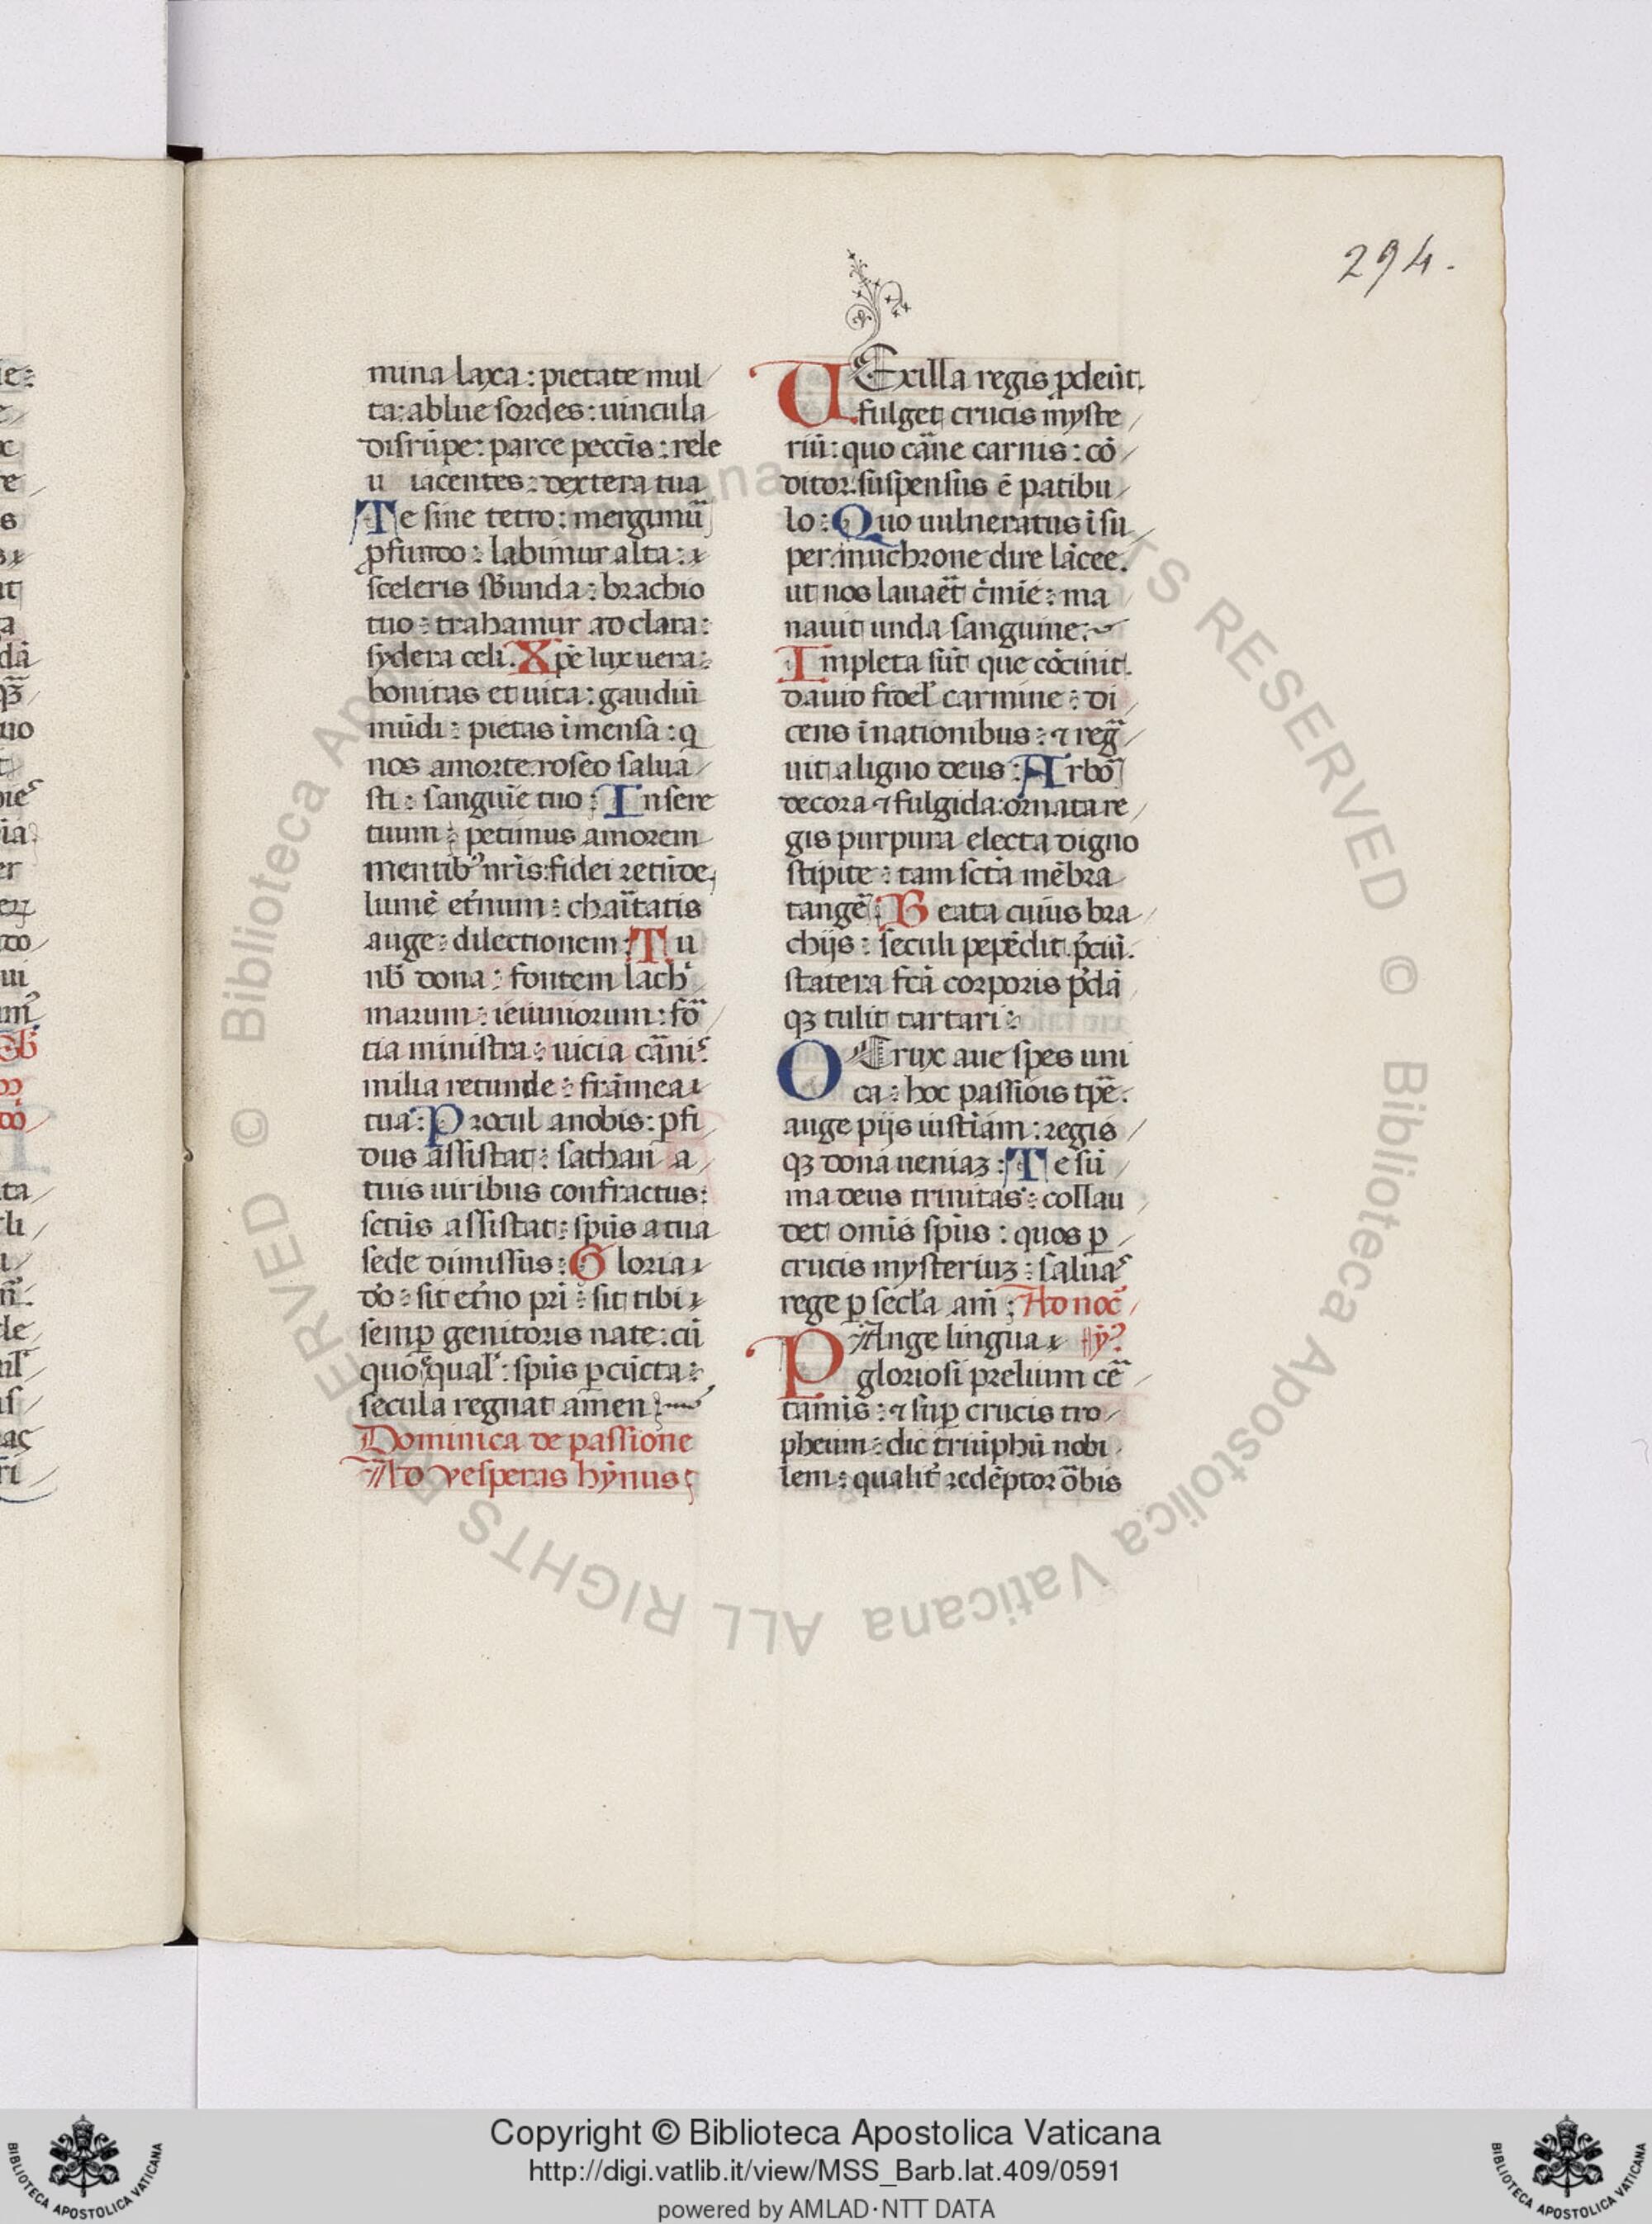 294.
mina laxa : pietate mul
ta : ablue sordes : uincula
disrūpe : parce peccīs : rele
u iacentes : dextera tua
Te sine tetro : mergimū
ꝓfundo : labimur alta :
sceleris sb unda : brachio
tuo : trahamur ad clara :
sydera celi . Xpē lux uera :
bonitas et uita : gaudiū
mūdi : pietas īmensa : q
nos amore roseo salua
sti : sanguīe tuo : Insere
tuum : petimus amorem
mentibꝰ nr̄is : fidei retūde
lumē et̄num : chari̅tatis
auge : dilectionem : Tu
nb̄ dona : fontem lachꝰ
marum : ieiuniorum : fō
tia ministra : uicia cāniꝰ
milia retunde : frāmea
tua : Procul a nobis : ꝑfi
dus assistat : sathan a
tuis uiribus confractus :
sctūs assistat : spūs a tua
sede dimissus : Gloria
dō : sit et̄no pr̄i : sit tibi
semꝑ genitoris nate : cū
quo equalꝰ : spūs ꝑ cūcta :
secula regnat amen
Dominica de passione
Ad vesperas hȳnus
UExilla regis ꝓdeūt.
fulget crucis myste
riū : quo cāne carnis : cō
ditor : suspensus ē patibu
lo : Quo uulneratus ī su
per . muchrone dire lācee .
ut nos lauaēt cīmīe : ma
nauit unda sanguine :
Impleta sūt que cōcinit .
dauid fidelꝰ carmine : di
cens ī nationibus : ⁊ reg̅
uit a ligno deus : Arbō
decora ⁊ fulgida : ornata re
gis purpura electa digno
stipite : tam sctā mēbra
tangē : Beata cuius bra
chijs : seculi pepēdit p̄ciū .
statera fcā corporis p̄dā
qꝫ tulit tartari :
O Crux aue spes uni
ca : hoc passiōis tpē .
auge pijs iustiām : regis
qꝫ dona ueniaꝫ : Te sū
ma deus trinitas : collau
det omīs spūs : quos ꝑ
crucis mysteriuꝫ : saluaꝰ
rege ꝑ secl̄a am̄ : Ad nocꝰ
PAnge lingua hȳꝰ
gloriosi prelium cē
taminis : ⁊ suꝑ crucis tro
pheum : dic triūphū nobi
lem : qualit̄ redēptor ōbis
Copyright © Biblioteca Apostolica Vaticana
http://digi.vatlib.it/view/MSS_Barb.lat.409/0591
powered by AMLAD·NTT DATA
© Biblioteca Apostolica Vaticana ALL RIGHTS RESERVED
BIBLIOTECA APOSTOLICA VATICANA
BIBLIOTECA APOSTOLICA VATICANA